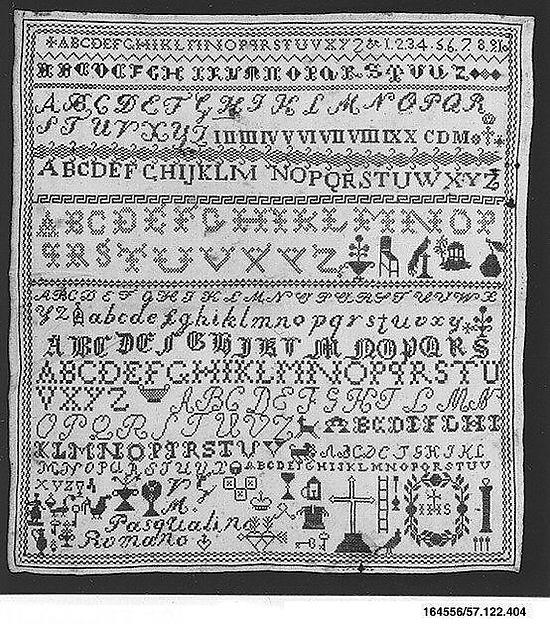 ABCDEFGHIKLMNOPQRSTUVXYZ & 1.2.3.4.5.6.7.8.9.
ABCDEFGHIKLMNOPQRSTUVZ
ABCDEFGHIKLMNOPQR
STUVXYZ I II III IV V VI VII VIII IX X CDM
ABCDEFGHIJKLM NOPQRSTUWXYZ
ABCDEFGHIKLMNOP
QRSTUVXYZ
ABCDEFGHIKLMNOPQRSTUVWX
YZ abcdefghiklmnopqrstuvxy
ABCDEFGHIKLMNOPQRS
ABCDEFGHIKLMNOPQRSTU
VXYZ ABCDEFGHILMN
OPQRSTUVZ ABCDEFGHI
KLMNOPQRSTV ABCDEFGHIKL
MNOPQRSTUVZ ABCDEFGHIKLMNOPQRSTUV
XYZ
M.
IHS
Pasqualina
Romano
164556/57.122.404